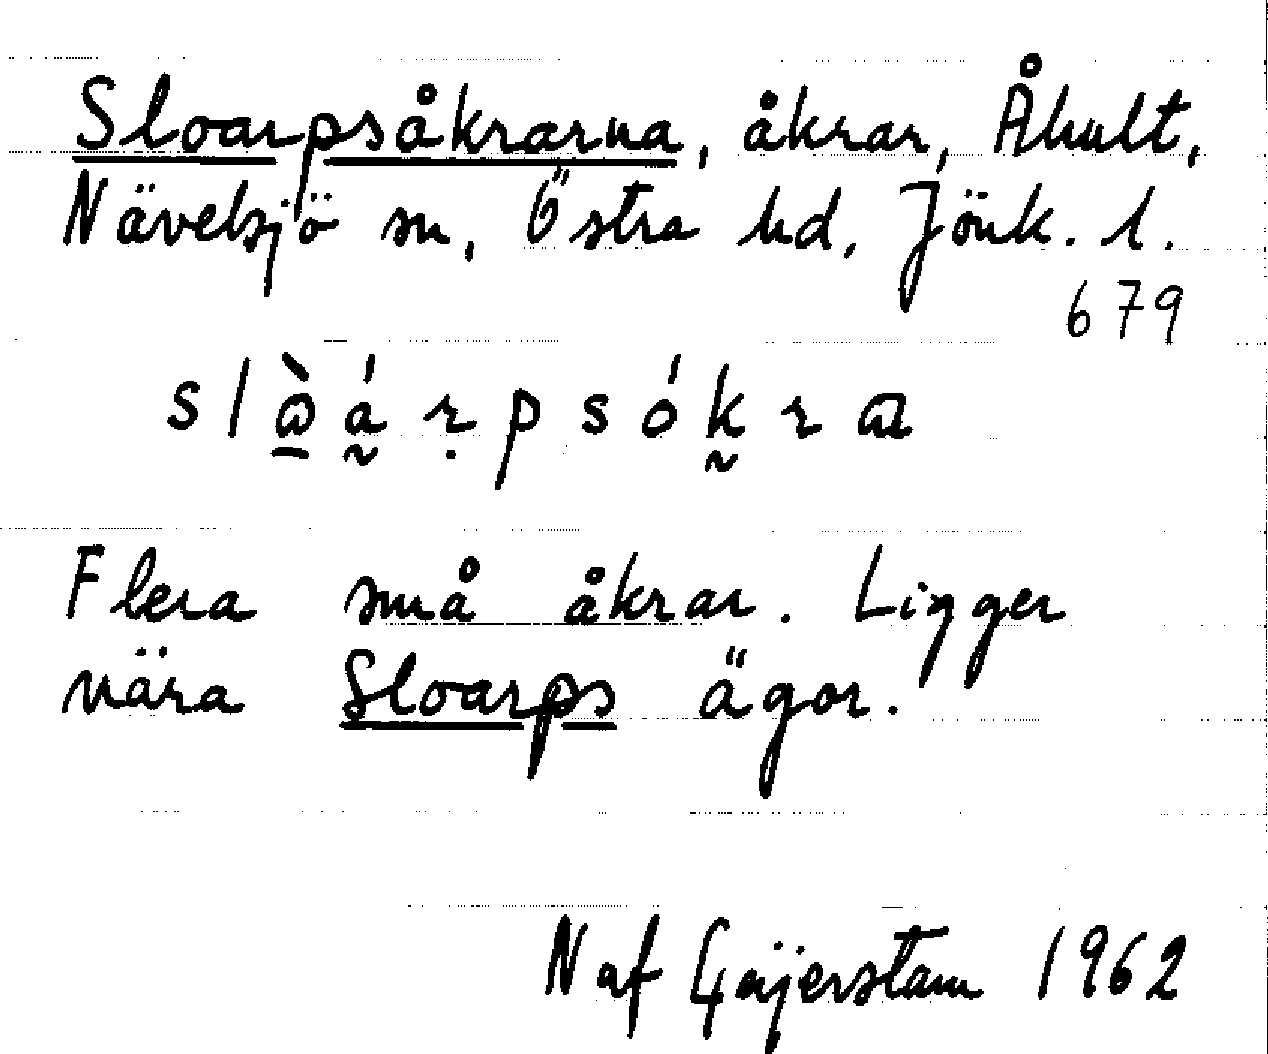 Sloarpsåkrarna, åkrar, Åhult,
Nävelsjö sn, Östra hd, Jönk. l.
679
Flera små åkrar. Ligger
nära Sloarps ägor.
N af Geijerstam 1962